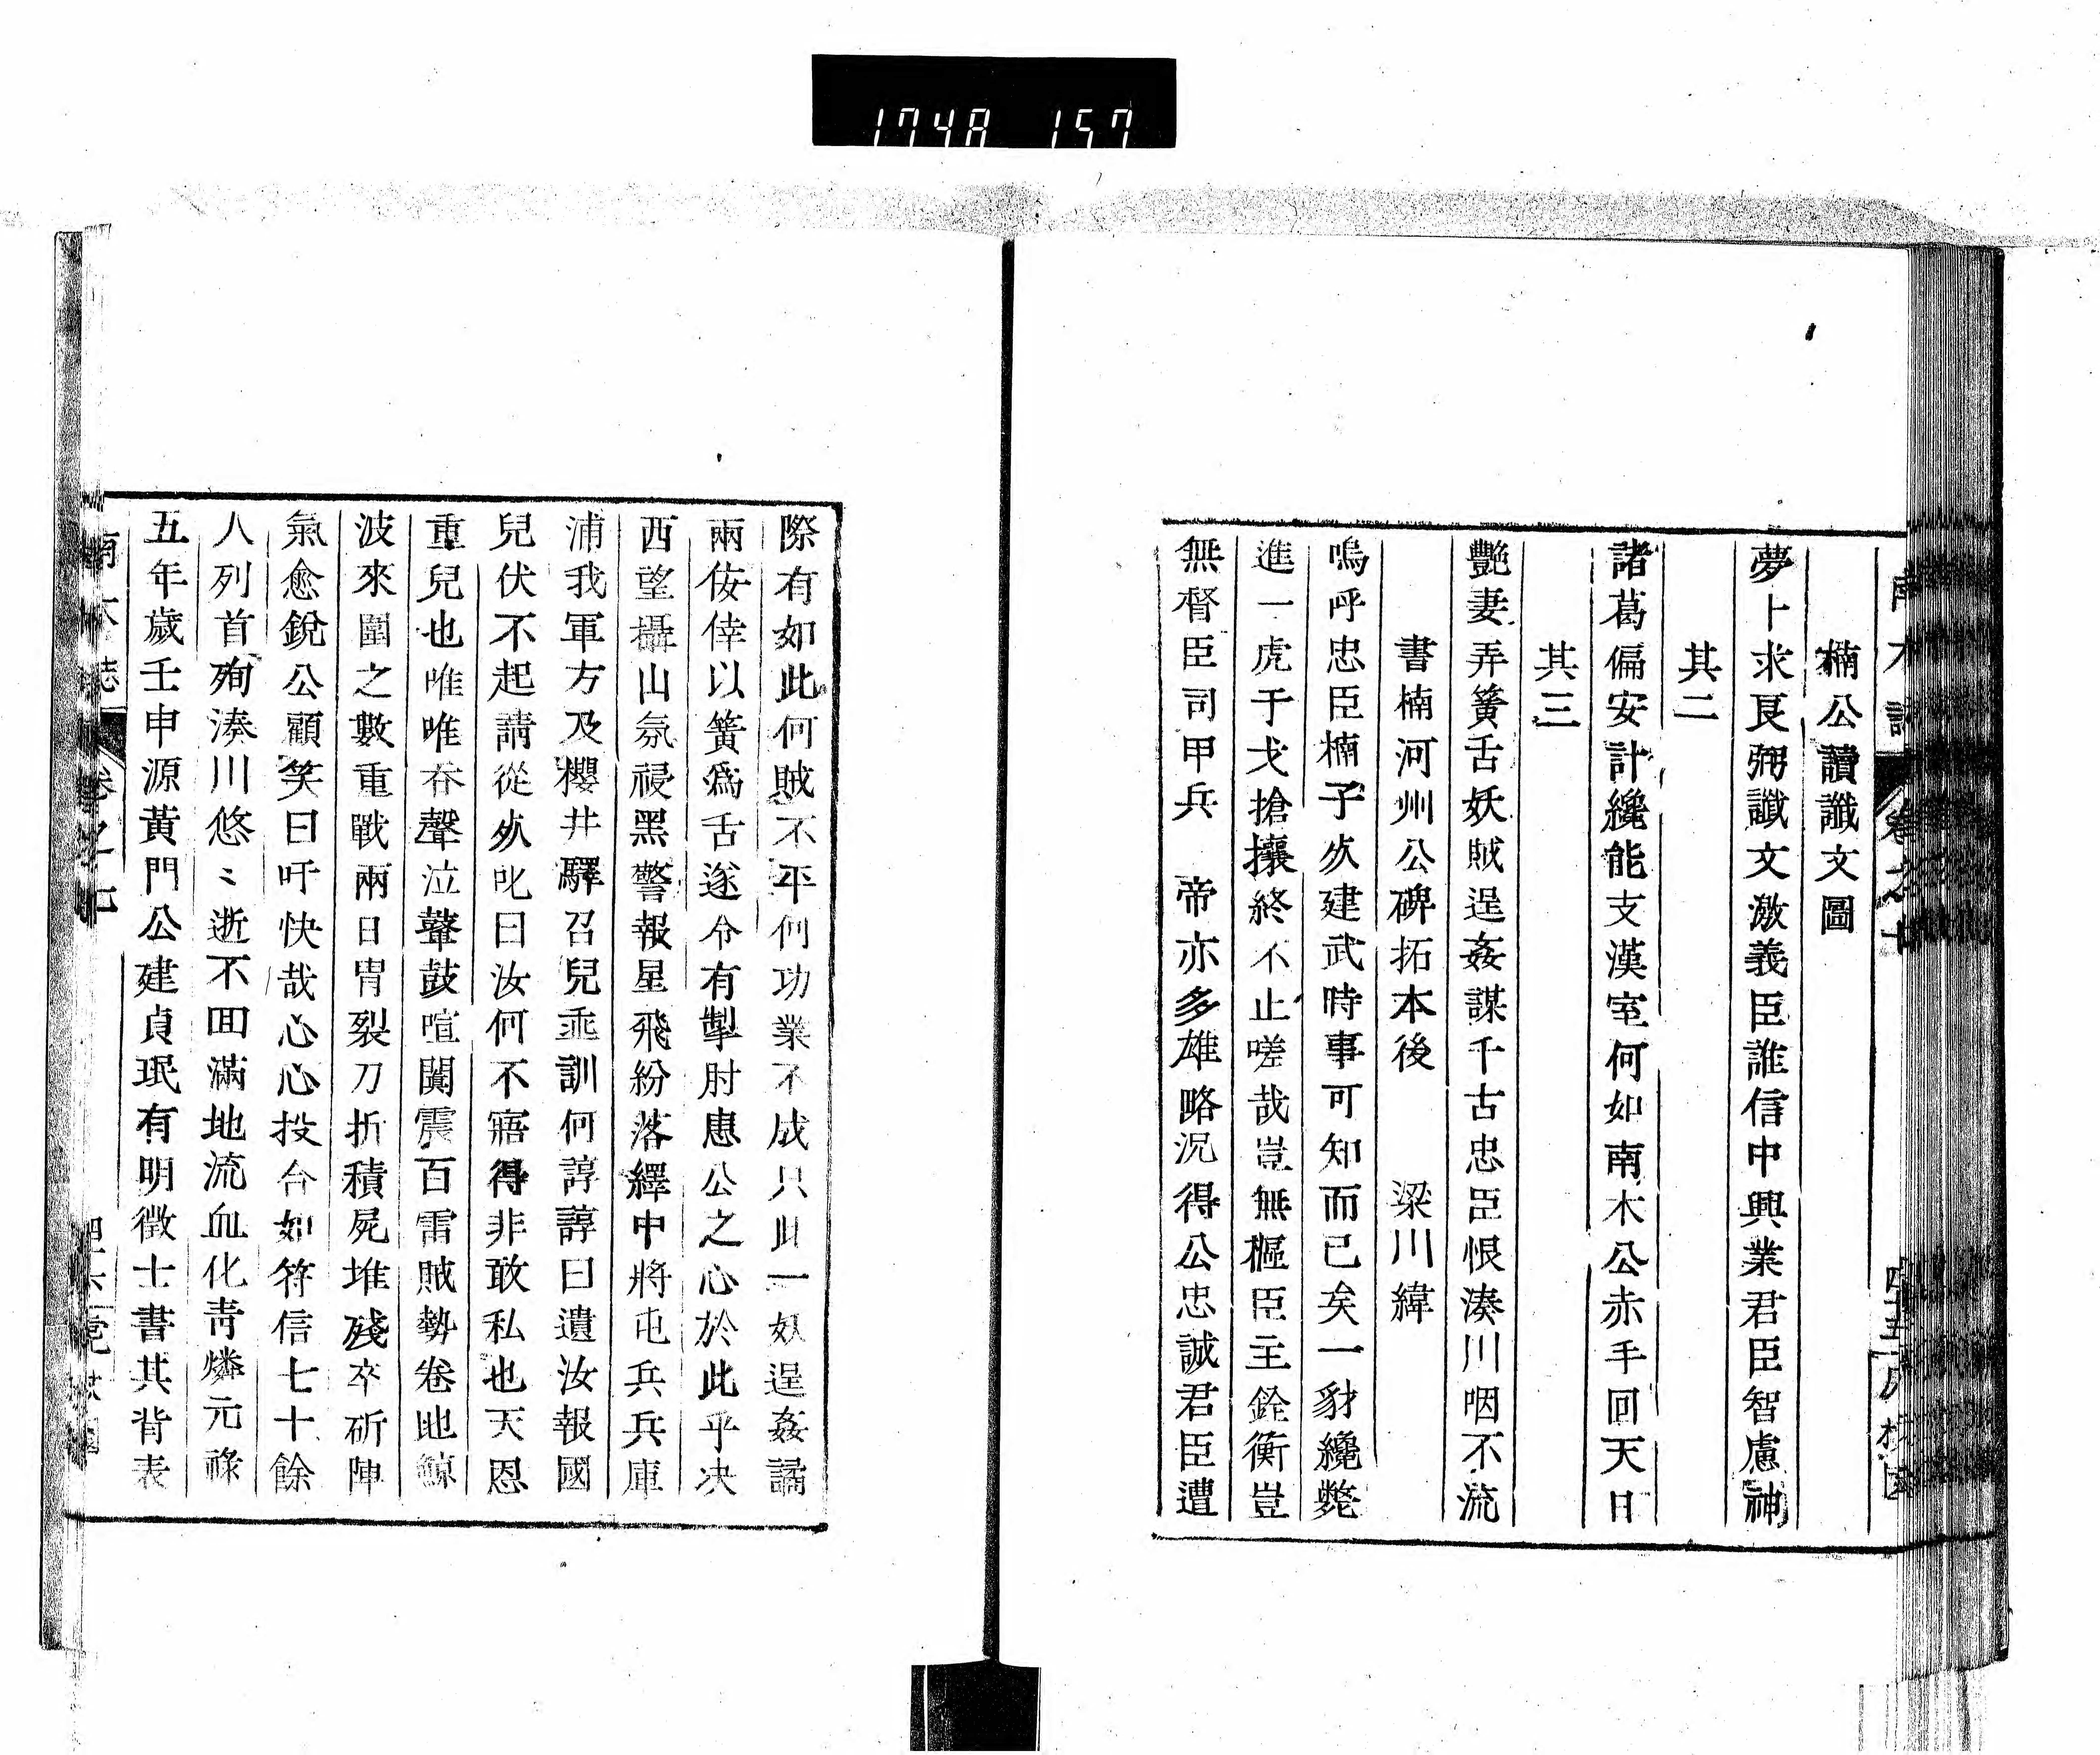 1748 157
楠公讀讖文圖
夢卜求良弼讖文激義臣誰信中興業君臣智慮神
其二
諸葛偏安計纔能支漢室何如南木公赤手回天日
其三
艷妻弄簧舌妖賊逞姦謀千古忠臣恨湊川咽不流
書楠河州公碑拓本後 梁川緯
嗚呼忠臣楠子夊建武時事可知而已矣一豺纔斃
進一虎干戈搶攘終不止嗟哉豈無樞臣主銓衡豈
無督臣司甲兵 帝亦多雄略況得公忠誠君臣遭
際有如此何賊不平何功業不成只此一奴逞姦譎
兩侫倖以簧爲舌遂令有掣肘患公之心於此乎决
西望攝山氛祲黑警報星飛紛落繹中將屯兵兵庫
浦我軍方及櫻井驛召兒垂訓何諄諄曰遺汝報國
兒伏不起請從夊叱曰汝何不寤得非敢私也天恩
重兒也唯唯吞聲泣鼙鼓喧闐震百雷賊勢卷地鯨
波來圍之數重戰兩日冑裂刀折積屍堆殘卒斫陣
氣愈銳公顧笑曰吁快哉心心投合如符信七十餘
人列首殉湊川悠〻逝不回滿地流血化靑燐元祿
五年歲壬申源黃門公建貞珉有明徵士書其背表
卷之七